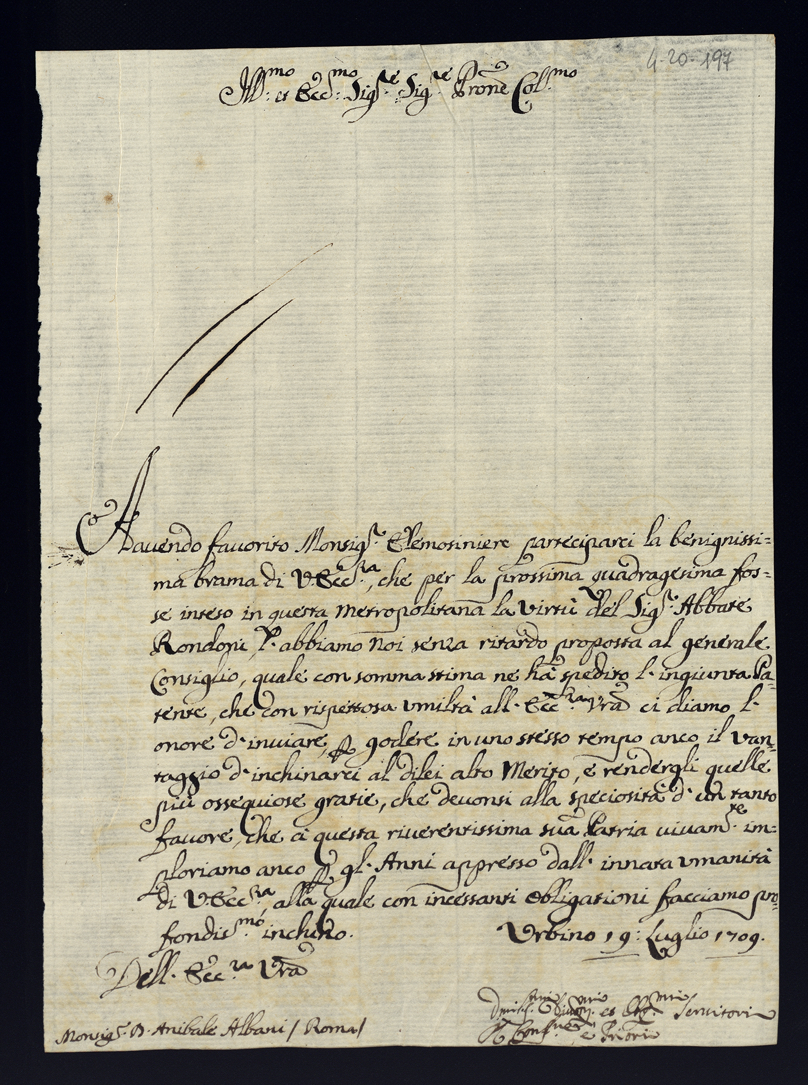 4-20-197
Ill:mo et Ecc:mo Sig:re Sig:re Prone Col:mo
Havendo favorito Monsig.r Elemosiniere parteciparci la benignissi-
ma brama di V. Ecc.za, che per la prossima quadragesima fos-
se inteso in questa metropolitana la virtù del Sig.r Abbate
Rondoni, l'abbiamo noi senza ritardo proposta al generale
Consiglio, quale con somma stima ne hà spedito l'ingiunta Pa-
tente, che con rispettosa umiltà all'Ecc.za Vra ci diamo l'
onore d'inviare, godere in uno stesso tempo anco il van-
taggio d'inchinarci al dilei alto Merito, e rendergli quelle
più ossequiose gratie, che devonsi alla speciosità d'un tanto
favore, che à questa riverentissima sua Patria vivam.te im-
ploriamo anco gl'Anni appresso dall'innata umanità
di V. Ecc.za alla quale con incessanti obligationi facciamo pro-
fondis.mo inchino. Urbino 19: Luglio 1709.
Dell'Ecc.za Vra
Monsig.r D. Anibale Albani / Roma /
et Servitori
e Priori